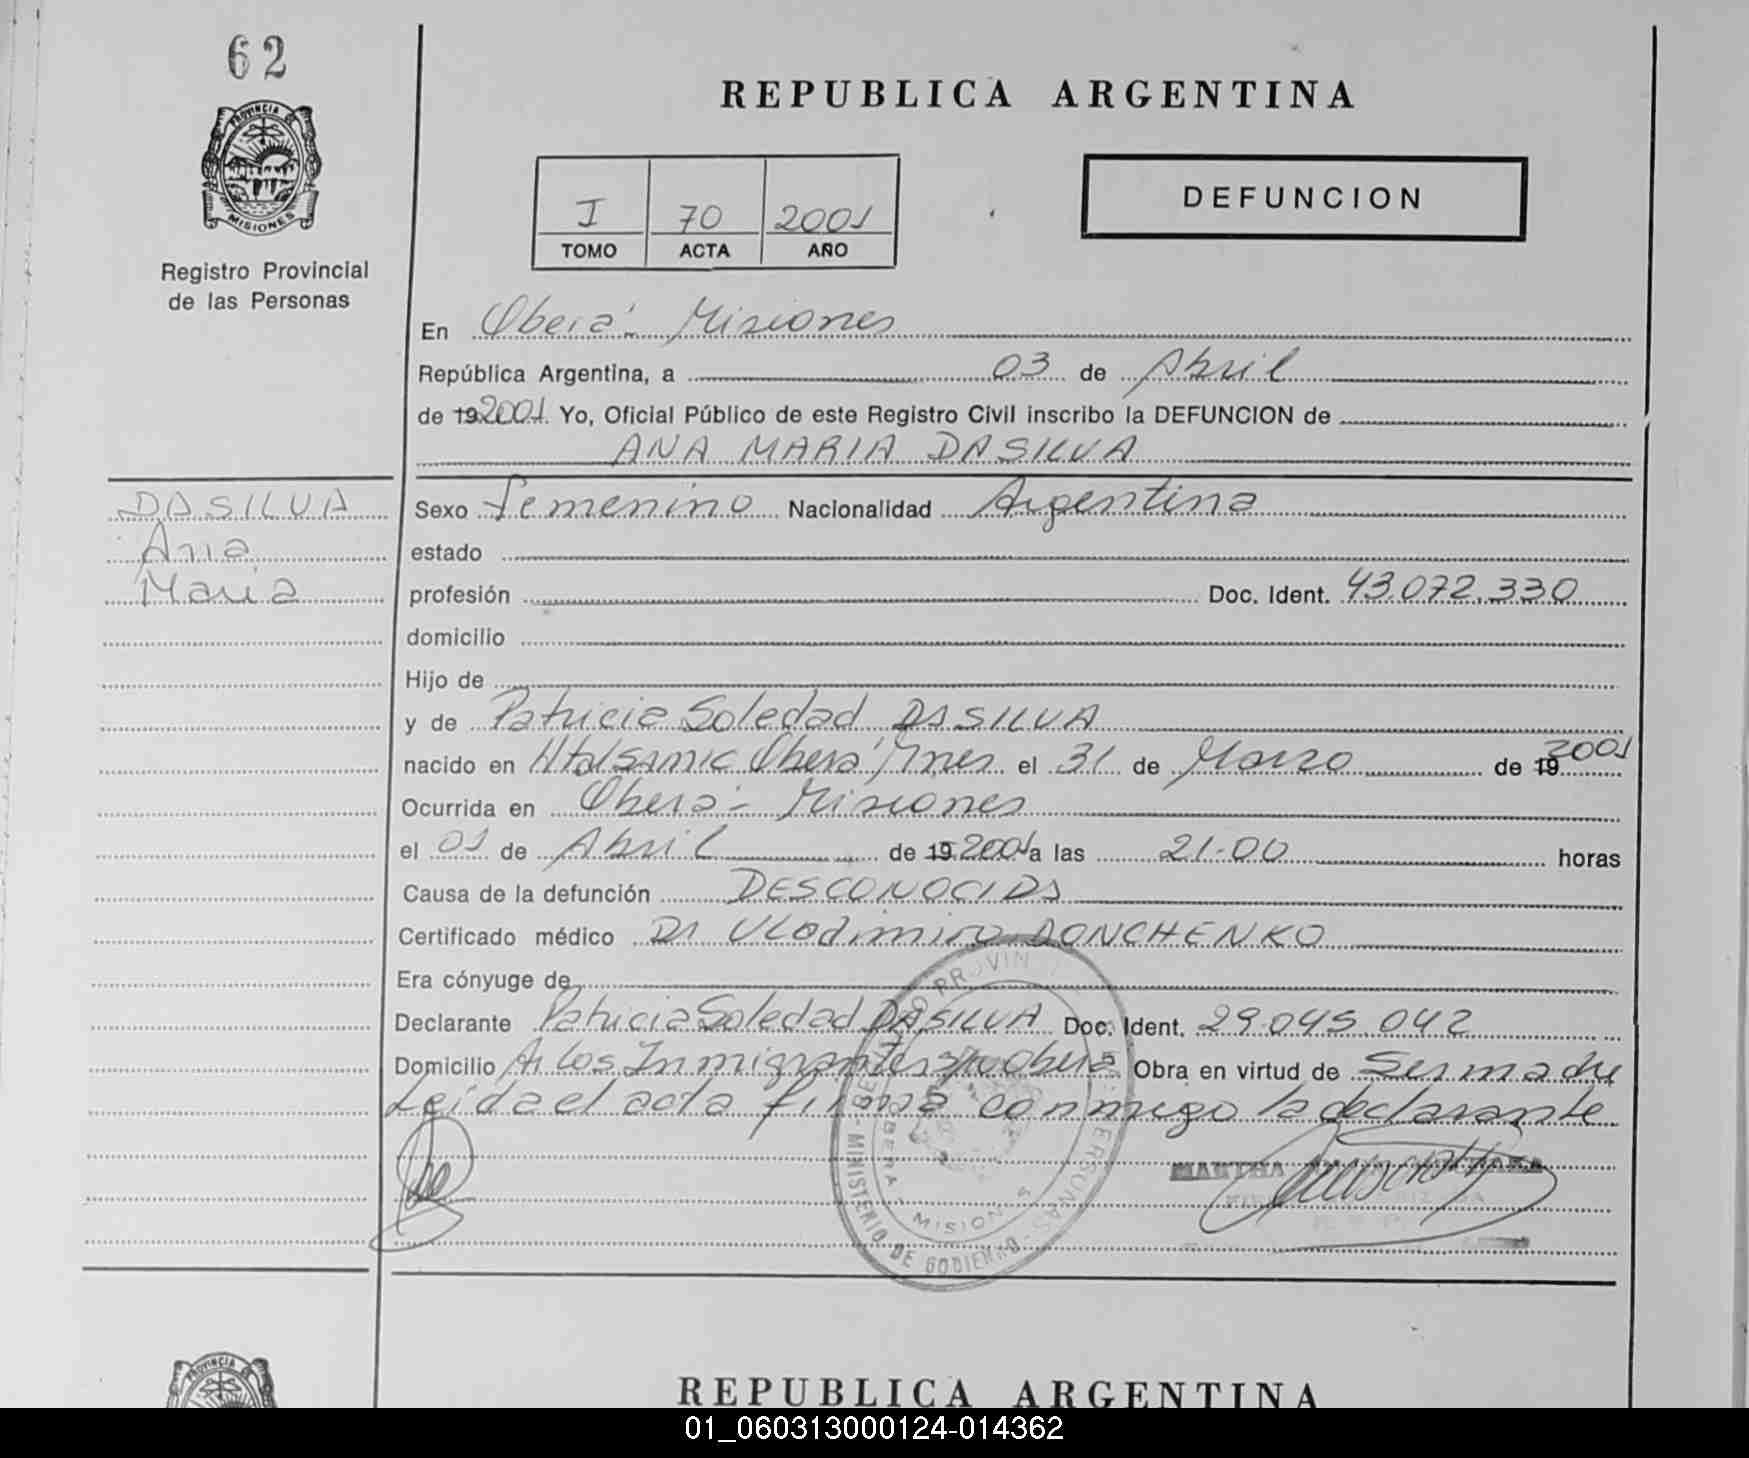 62
PROVINCIA DE
MISIONES
Registro Provincial
de las Personas
REPUBLICA ARGENTINA
I 70 2001
TOMO ACTA AÑO
DEFUNCION
En Oberá - Misiones
República Argentina, a 03 de Abril
de 19 2001 Yo, Oficial Público de este Registro Civil inscribo la DEFUNCION de
ANA MARIA DASILVA
DASILVA
Ana
Maria
Sexo femenino Nacionalidad Argentina
estado
profesión Doc. Ident. 43.072.330
domicilio
Hijo de
y de Patricia Soledad DASILVA
nacido en Htal Samic Oberá Mnes el 31 de Marzo de 19 2001
Ocurrida en Oberá - Misiones
el 01 de Abril de 19 2001 a las 21.00 horas
Causa de la defunción DESCONOCIDA
Certificado médico Dr Vladimiro DONCHENKO
Era cónyuge de
Declarante Patricia Soledad DASILVA Doc. Ident. 29.045.042
Domicilio Av Los Inmigrantes s/n Oberá Obra en virtud de Ser madre
Leída el acta firma conmigo la declarante
MINISTERIO DE GOBIERNO
OBERA - MISIONES
MARTHA
REPUBLICA ARGENTINA
PROVINCIA DE
01_060313000124-014362